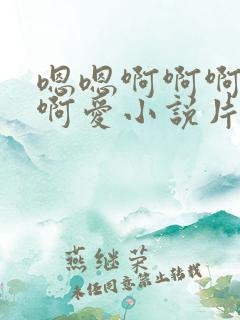 嗯嗯啊啊啊
啊爱小说片
燕继荣
未经同意禁止转载